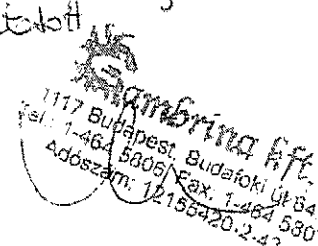 Gambrina Kft.
1117 Budapest, Budafoki út 84.
Tel.: 1-464 5806 Fax: 1-464 580
Adószám: 12155420-2-43